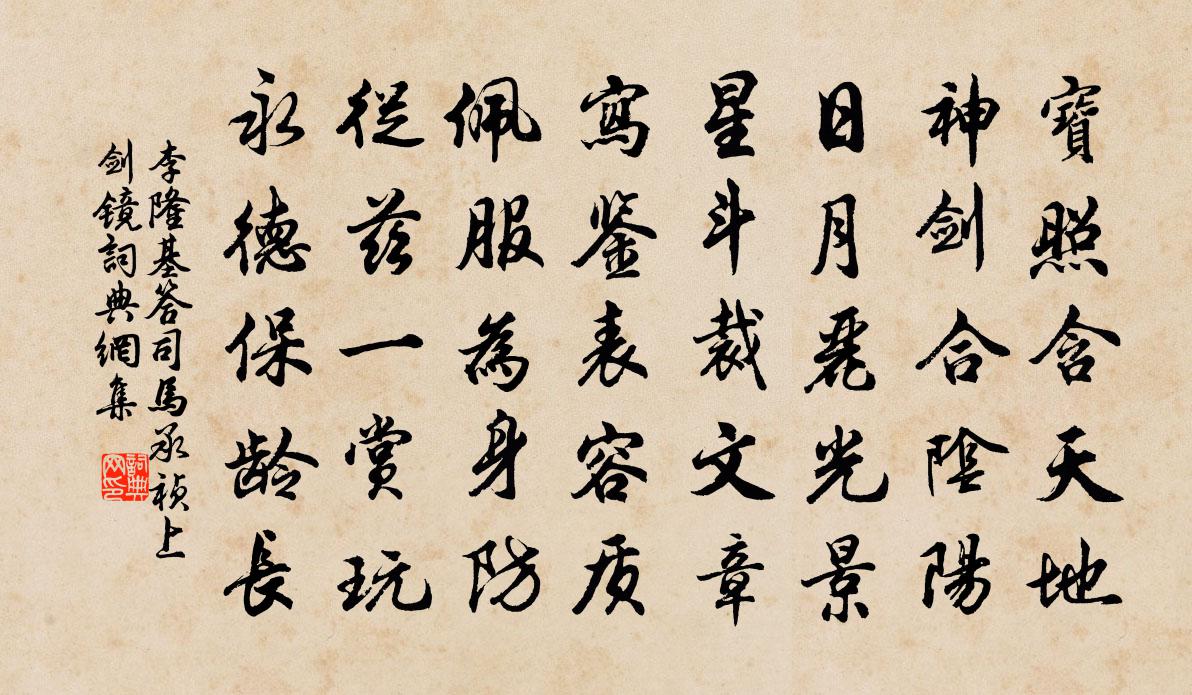 寶照含天地
神剑合陰陽
日月麗光景
星斗裁文章
寫鉴表容质
佩服為身防
從兹一賞玩
永德保龄長
李隆基答司馬承禎上
剑鏡詞典網集
詞典
网印